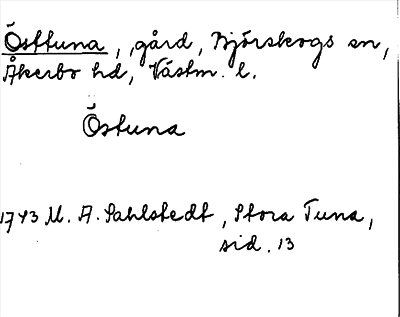 Östtuna, gård, Björskogs sn,
Åkerbo hd, Västm. l.
Östuna
1743 M. A. Sahlstedt, Stora Tuna,
sid. 13